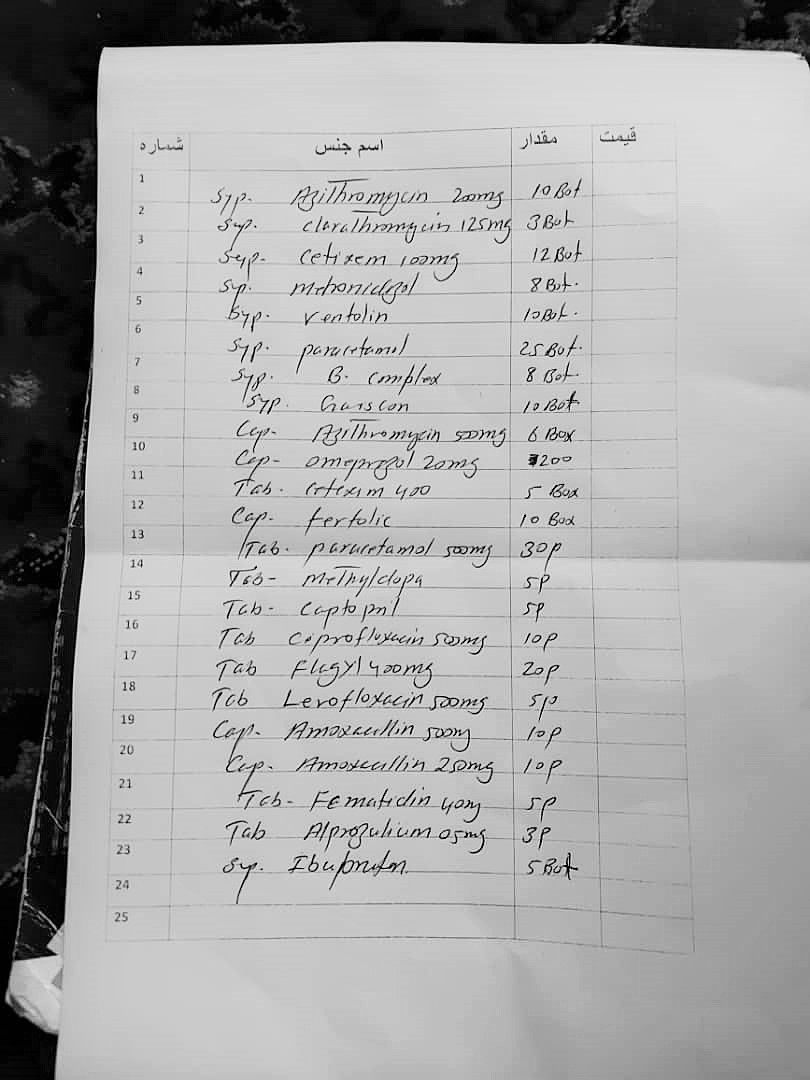 شماره اسم جنس مقدار قیمت
1 Syp. Azithromycin 200mg 10 Bot
2 Syp. clarathromycin 125mg 3 Bot
3 Syp. Cetixem 100mg 12 Bot
4 Syp. metronidazol 8 Bot.
5 Syp. Ventolin 10 Bot.
6 Syp. paracetamol 25 Bot.
7 Syp. B. complex 8 Bot.
8 Syp. Gaviscon 10 Bot
9 Cap- Azithromycin 500mg 6 Box
10 Cap- omeprazol 20mg 200
11 Tab- Cetexim 400 5 Box
12 Cap- fertolic 10 Box
13 Tab- paracetamol 500mg 30p
14 Tab- Methyldopa 5p
15 Tab- Captopril 5p
16 Tab Ciprofloxacin 500mg 10p
17 Tab Flagyl 400mg 20p
18 Tab Levofloxacin 500mg 5p
19 Cap- Amoxacillin 500mg 10p
20 Cap- Amoxacillin 250mg 10p
21 Tab- Fematidin 40mg 5p
22 Tab Alprozulium 05mg 3p
23 Syp. Ibuprofen. 5 Bot
24
25